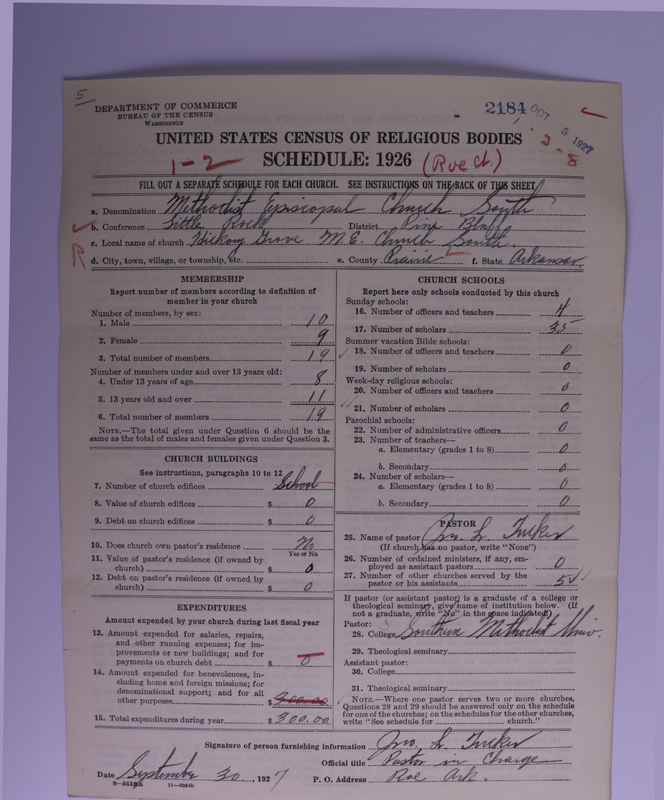 5
DEPARTMENT OF COMMERCE
BUREAU OF THE CENSUS
WASHINGTON
2184 OCT 5 1927
2-8
UNITED STATES CENSUS OF RELIGIOUS BODIES
1-2 SCHEDULE: 1926 (Roe ct.)
FILL OUT A SEPARATE SCHEDULE FOR EACH CHURCH. SEE INSTRUCTIONS ON THE BACK OF THIS SHEET
a. Denomination Methodist Episcopal Church South
b. Conference Little Rock District Pine Bluff
R c. Local name of church Hickory Grove M.E. Church South.
d. City, town, village, or township, etc. e. County Prairie f. State Arkansas
MEMBERSHIP
Report number of members according to definition of
member in your church
Number of members, by sex:
1. Male 10
2. Female 9
3. Total number of members 19
Number of members under and over 13 years old:
4. Under 13 years of age 8
5. 13 years old and over 11
6. Total number of members 19
NOTE.—The total given under Question 6 should be the
same as the total of males and females given under Question 3.
CHURCH BUILDINGS
See instructions, paragraphs 10 to 12
7. Number of church edifices School
8. Value of church edifices $ 0
9. Debt on church edifices $ 0
10. Does church own pastor's residence No
Yes or No
11. Value of pastor's residence (if owned by
church) $ 0
12. Debt on pastor's residence (if owned by
church) $ 0
EXPENDITURES
Amount expended by your church during last fiscal year
13. Amount expended for salaries, repairs,
and other running expenses; for im-
provements or new buildings; and for
payments on church debt $ 0
14. Amount expended for benevolences, in-
cluding home and foreign missions; for
denominational support; and for all
other purposes $ 300.00
15. Total expenditures during year $ 300.00
CHURCH SCHOOLS
Report here only schools conducted by this church
Sunday schools:
16. Number of officers and teachers 4
17. Number of scholars 35
Summer vacation Bible schools:
18. Number of officers and teachers 0
19. Number of scholars 0
Week-day religious schools:
20. Number of officers and teachers 0
21. Number of scholars 0
Parochial schools:
22. Number of administrative officers 0
23. Number of teachers—
a. Elementary (grades 1 to 8) 0
b. Secondary 0
24. Number of scholars—
a. Elementary (grades 1 to 8) 0
b. Secondary 0
PASTOR
25. Name of pastor Jno. L. Tucker
(If church has no pastor, write "None")
26. Number of ordained ministers, if any, em-
ployed as assistant pastors 0
27. Number of other churches served by the
pastor or his assistants 5
If pastor (or assistant pastor) is a graduate of a college or
theological seminary, give name of institution below. (If
not a graduate, write "No" in the space indicated)
Pastor: 3
28. College Southern Methodist Univ.
29. Theological seminary
Assistant pastor:
30. College
31. Theological seminary
NOTE.—Where one pastor serves two or more churches,
Questions 28 and 29 should be answered only on the schedule
for one of the churches; on the schedules for the other churches,
write "See schedule for church."
Signature of person furnishing information Jno. L. Tucker
Official title Pastor in Charge
Date September 30, 1927 P. O. Address Roe Ark.